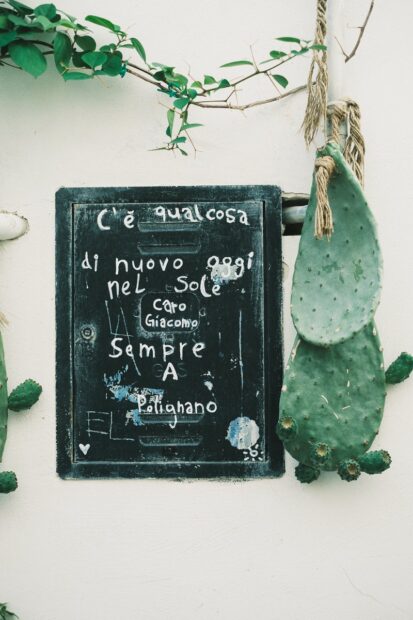 C'è qualcosa
di nuovo oggi
nel Sole
caro
Giacomo
Sempre
A
Polignano